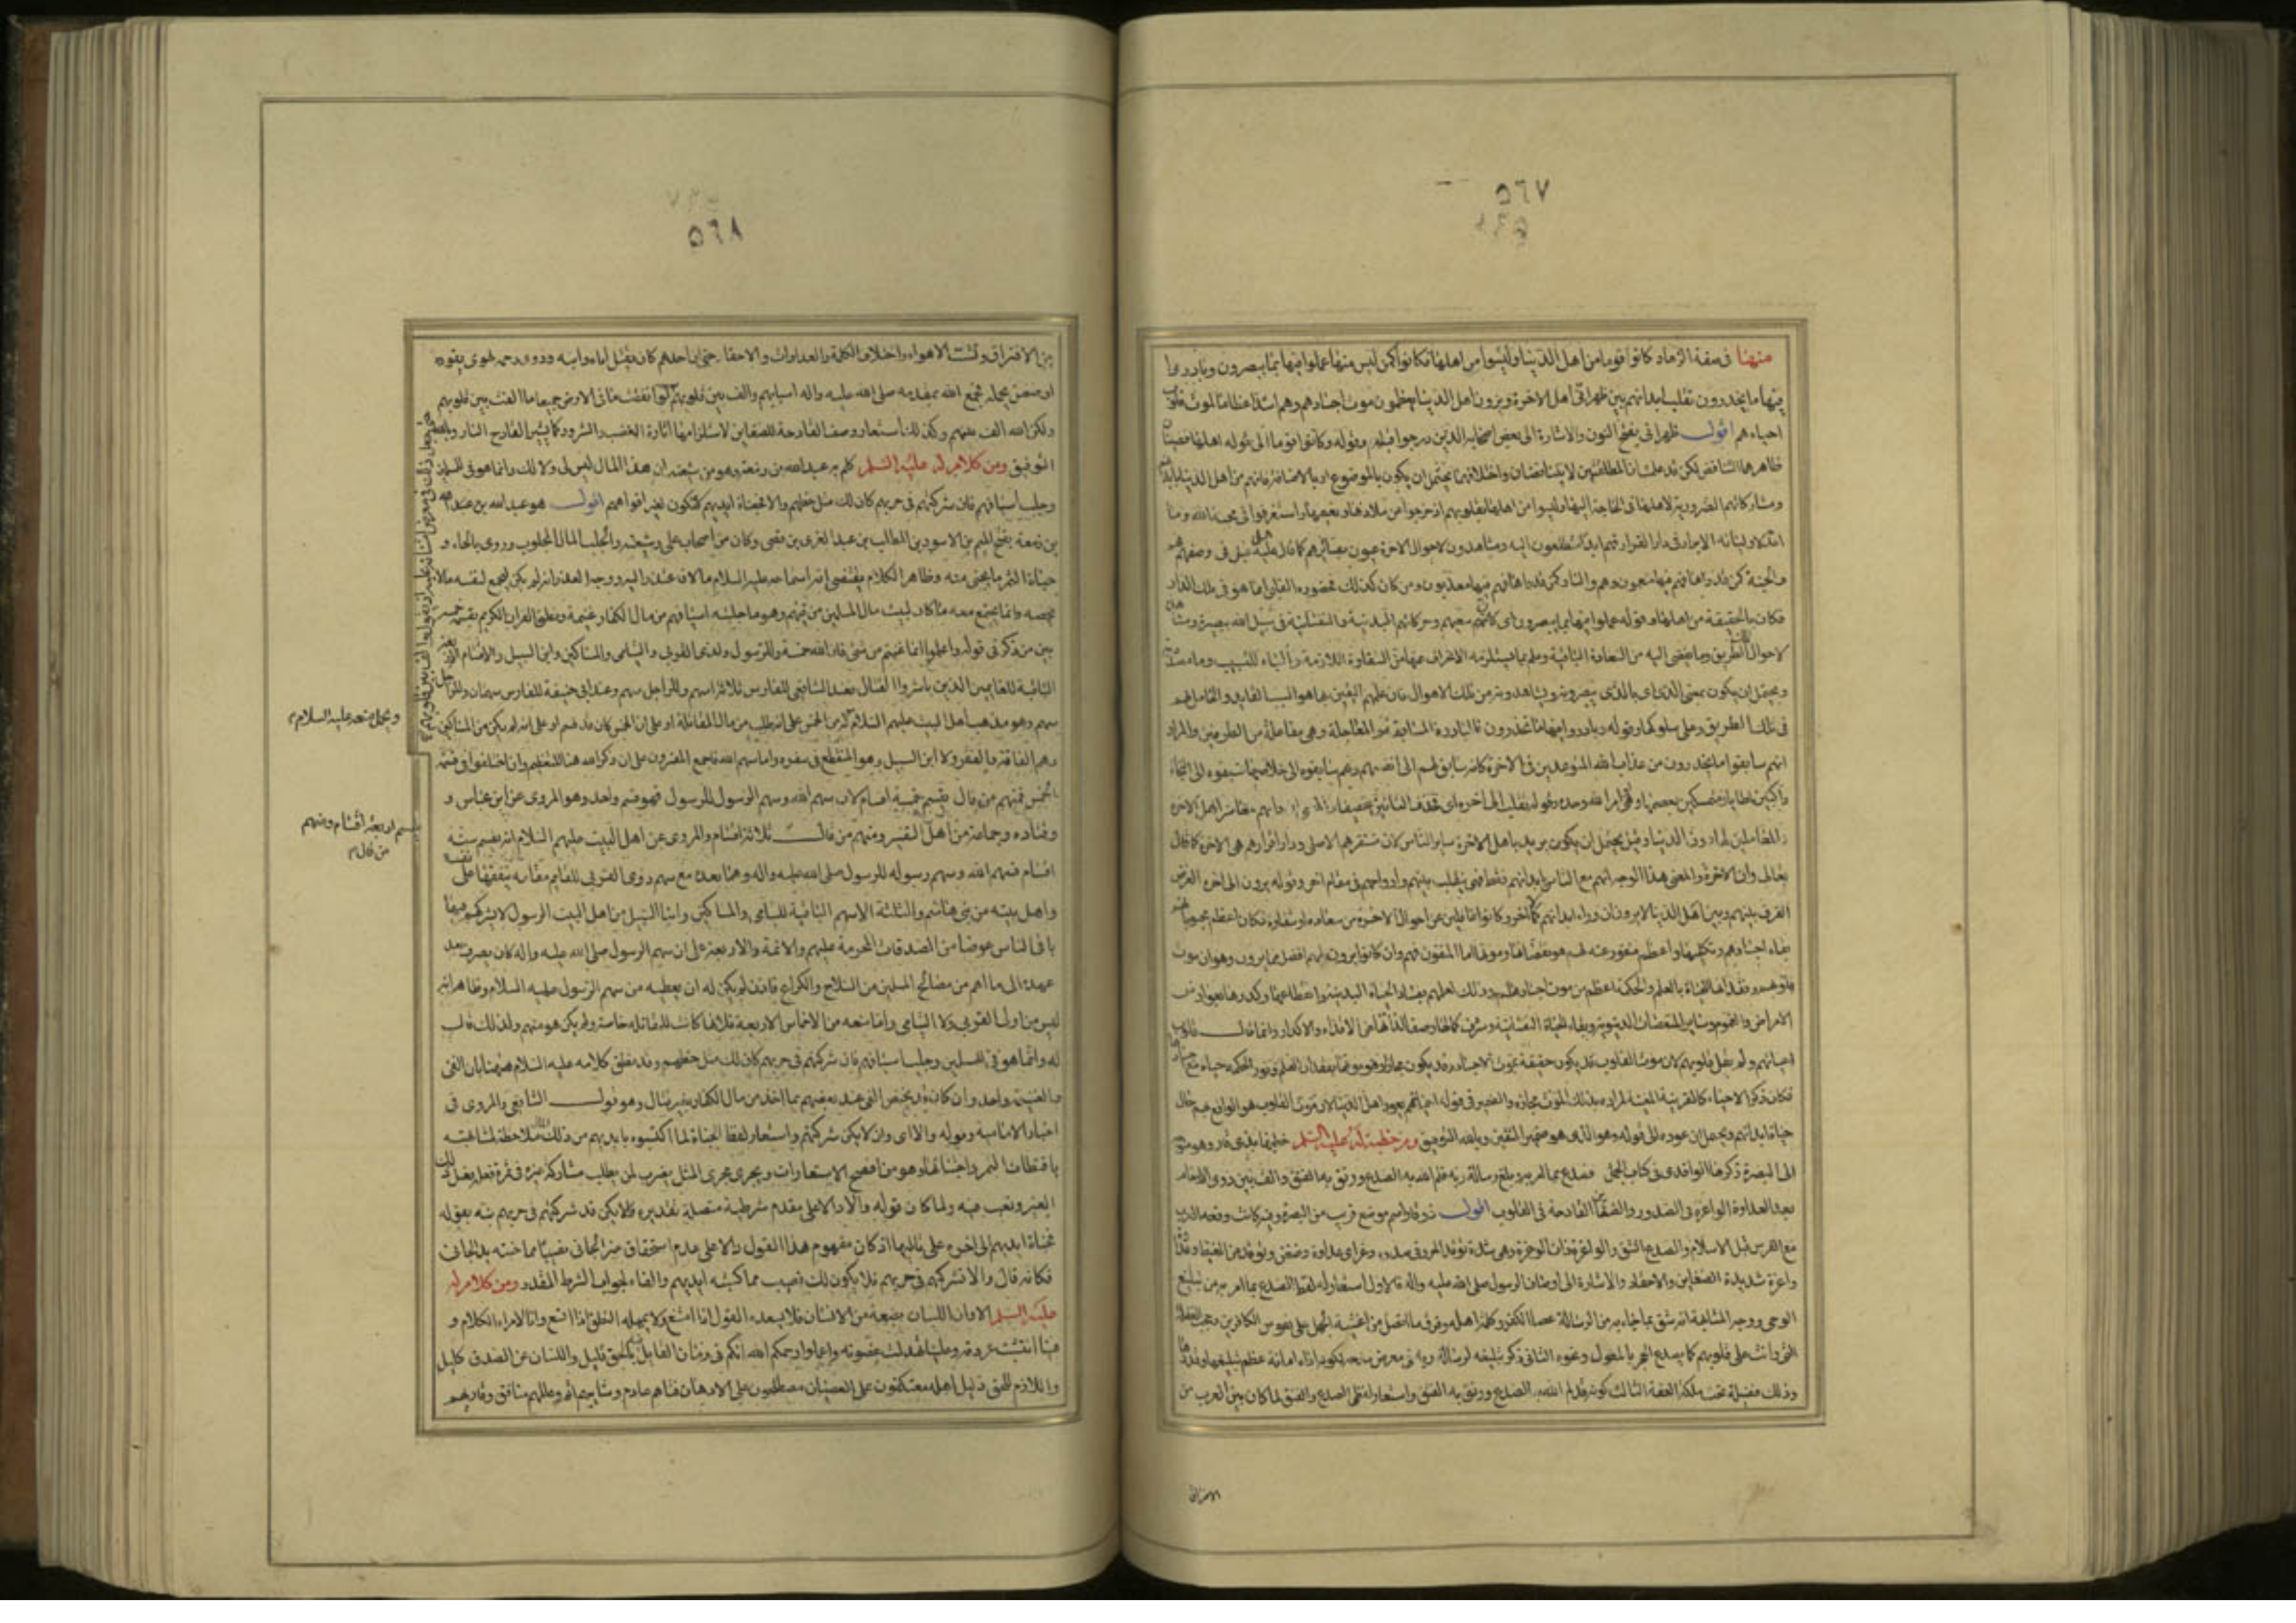 ٥٦٧
منها في صفة الزهاد كانوا قوما من اهل الدنيا وليسوا من اهلها فكانوا كمن ليس منها عملوا فيها بما يبصرون وبادروا
فيها ما يحذرون تقلب ابدانهم بين ظهراني اهل الاخرة ويرون اهل الدنيا يعظمون موت اجسادهم وهم اشد اعظاما لموت قلوب
احياءهم اقول ظهراني بفتح النون والاشارة الى بعض اصحابه الذين درجوا قبله وقوله وكانوا قوما الى قوله اهلها قضيتان
ظاهرهما التناقض لكن قد علمت ان المطلقتين لا يتناقضان واختلافهما يحتمل ان يكون بالموضوع او بالاضافة فانهم من اهل الدنيا بابدانهم
ومشاركاتهم الضرورية لاهلها في الحاجة اليها وليسوا من اهلها بقلوبهم اذ خرجوا من ملاذها ونعيمها واستغرقوا في محبة الله وما
اعد لاوليائه الابرار في دار القرار فهم ابدا متطلعون اليه ومشاهدون لاحوال الاخرة بعيون بصائرهم كما قال عليه قبل في وصفهم هم
والجنة كمن قد راها فهم فيها منعمون وهم والنار كمن قد راها فهم فيها معذبون ومن كان كذلك فحضوره القلبي انما هو في تلك الدار
فكان بالحقيقة من اهلها وقوله عملوا فيها بما يبصرون اي كان سعيهم وحركاتهم البدنية والنفسانية في سبيل الله ببصيرة ومشاهدة
لاحوال تلك الطريق وما يفضي اليه من السعادة الباقية وعلم بما يستلزمه الانحراف عنها من الشقاوة اللازمة والباء للتسبيب وما مصدرية
ويحتمل ان يكون بمعنى الذي اي بالذي يبصرونه ويشاهدونه من تلك الاحوال فان علمهم اليقين بها هو السبب القايد والحامل لهم
في تلك الطريق وعلى سلوكها وقوله وبادروا فيها ما يحذرون فالمبادرة المسابقة والمعاجلة وهي مفاعلة من الطرفين والمراد
انهم سابقوا ما يحذرون من عذاب الله المتوعد به في الاخرة كانه سابق لهم الى انفسهم وهم يسابقوه الى خلاصها فسبقوه الى النجاة
والمعاملين لها دون الدنيا وقيل يحتمل ان يكون يريد باهل الاخرة ساير الناس لان مستقرهم الاصلي ودار قرارهم هي الاخرة كما قال
تعالى وان الاخرة والمعنى هذا الوجه انهم مع الناس بابدانهم فقط فهي تتقلب بينهم وارواحهم في مقام اخر وقوله يرون الى اخره الغرض
الفرق بينهم وبين اهل الدنيا لا يرون ان وراء ابدانهم كمالا اخر وكانوا غافلين عن احوال الاخرة من سعادة او شقاوة فكان اعظم محبوبا لهم
بقاء اجسادهم وتكميلها واعظم منفور عنه لهم هو نقصانها وموتها اما المتقون فهم وان كانوا يرونه لهم افضل مما يرون وهو ان موت
قلوبهم وفقدانها للحياة بالعلم والحكمة اعظم من موت اجسادهم وذلك لعلمهم بفناء الحياة البدنية وانقطاعها وكدرها بعوارض
الامراض والهموم وساير المنغصات الدنيوية وبقاء الحياة النفسانية وشرف كمالها وصفاء لذاتها من الاقذاء والاكدار وانما قال قلوب
احيائهم ولم يقل قلوبهم لان موت القلوب قد يكون حقيقة بموت الاجساد وقد يكون مجازا وهو موتها بفقدان العلم ونور الحكمة مع حياة اجسادها
فكان ذكر الاحياء كالقرينة المعينة لمراده بذلك الموت مجازه والضمير في قوله احيائهم يعود الى اهل الدنيا لان موت القلوب هو الواقع بهم حال
حياة ابدانهم ويحتمل ان عوده الى قوله وهو الذي هو ضمير المتقين وبالله التوفيق ومن خطبة له عليه السلم خطبها بذي قار وهو متوجه
الى البصرة ذكرها الواقدي في كتاب الجمل فصدع بما امر به وبلغ رسالة ربه فلم الله به الصدع ورتق به الفتق والف بين ذوي الارحام
بعد العداوة الواغرة في الصدور والضغاين القادحة في القلوب اقول ذو قار اسم موضع قريب من البصرة وفيه كانت وقعة العرب
مع الفرس قبل الاسلام والصدع الشق والواغرة ذات الوغرة وهي شدة توقد الحر وفي صدره وغر اي عداوة وضغن وتوقد من الغيظ وعداوة
واغرة شديدة الضغاين والاحقاد والاشارة الى اوصاف الرسول صلى الله عليه واله فالاول استعار له لفظ الصدع بما امر به من تبليغ
الوحي ووجه المشابهة انه شق بما جاء به من الرسالة عصا الكفر وكلمة اهله وفرق ما اتصل من اغشية الجهل على نفوس الكافرين وحجب الغفلة
التي رانت على قلوبهم كما يصدع الحجر بالمعول ونحوه الثاني ذكر تبليغه لرسالة ربه في معرض مدحه لكونه اداء امانة عظم تبليغها وقدرها
وذلك فضيلة تحت ملكة العفة الثالث كونه قد لم الله به الصدع ورتق به الفتق واستعار لفظي الصدع والفتق لما كان بين العرب من
الافتراق
٥٦٨
بين الافتراق وتشتت الاهواء واختلاف الكلمة والعداوات والاحقاد حتى ان احدهم كان يقتل اباه وابنه وذوي رحمه لهوى يقوده
او ضغن يحمله فجمع الله بمقدمه صلى الله عليه واله اسبابهم والف بين قلوبهم لو انفقت ما في الارض جميعا ما الفت بين قلوبهم
ولكن الله الف بينهم وكذلك استعار وصف القادحة للضغاين لاستلزامها اثارة الغضب والشرور كما يثير القادح النار وبالله
التوفيق ومن كلام له عليه السلم كلم به عبد الله بن زمعة وهو من شيعته ان هذا المال ليس لي ولا لك وانما هو فيء للمسلمين
وجلب اسيافهم فان شركتهم في حربهم كان لك مثل حظهم والا فجناة ايديهم لا تكون لغير افواههم اقول هو عبد الله
بن زمعة بفتح الميم بن الاسود بن المطلب بن عبد العزى بن قصي وكان من اصحاب علي وشيعته والجلب المال المجلوب وروى بالخاء و
جناة الثمر ما يجنى منه وظاهر الكلام يقتضي انه استماحه عليه السلام مالا فاعتذر اليه ووجه العذر انه لم يكن ليجمع لنفسه مالا
يخصه وانما يجتمع معه ما كان لبيت مال المسلمين من فيئهم وهو ما جلبته اسيافهم من مال الكفار غنيمة ونطق القران الكريم بقسمة خمسه
بين من ذكر في قوله واعلموا انما غنمتم من شيء فان لله خمسه وللرسول ولذي القربى واليتامى والمساكين وابن السبيل والاقسام الاربعة
الباقية للغانمين الذين باشروا القتال فعند الشافعي للفارس ثلاثة اسهم وللراجل سهم وعند ابي حنيفة للفارس سهمان وللراجل
سهم وهو مذهب اهل البيت عليهم السلام
ويحمل منعه عليه السلام
وهم اهل الفاقة والفقر ولا ابن السبيل وهو المنقطع في سفره واما سهم الله فاجمع المفسرون على ان ذكر الله هنا للتعظيم وان اختلفوا في قسمة
الخمس فمنهم من قال يقسم خمسة اقسام لان سهم الله وسهم الرسول للرسول فهو قسم واحد وهو المروى عن ابن عباس و
يقسم اربعة اقسام ومنهم
من قال
وقتاده وجماعة من اهل التفسير ومنهم من قال ثلاثة اقسام والمروى عن اهل البيت عليهم السلام انه يقسم ستة
اقسام فسهم الله وسهم رسوله للرسول صلى الله عليه واله وهما بعده مع سهم ذوي القربى للقايم مقامه ينفقها على نفسه
واهل بيته من بني هاشم والثلثة الاسهم الباقية لليتامى والمساكين وابناء السبيل من اهل البيت الرسول لا يشركهم فيها
باقي الناس عوضا من الصدقات المحرمة عليهم والائمة والاربعة على ان سهم الرسول صلى الله عليه واله كان يصرف بعد
عهده الى ما اهم من مصالح المسلمين من السلاح والكراع فاذن لم يكن له ان يعطيه من سهم الرسول عليه السلام وظاهر انه
ليس من اولي القربى ولا اليتامى وانما منعه من الاخماس الاربعة فلانها كانت للمقاتلة خاصة ولم يكن هو منهم ولذلك قال
له وانما هو فيء للمسلمين وجلب اسيافهم فان شركتهم في حربهم كان لك مثل حظهم وقد نطق كلامه عليه السلام ههنا بان الفيء
والغنيمة واحد وان كان قد يختص الفيء عند بعضهم بما اخذ من مال الكفار بغير قتال وهو قول الشافعي والمروى في
اخبار الامامية وقوله والا اي وان لا يكن شركتهم واستعار لفظ الجناة لما اكتسبوه بايديهم من ذلك المال ملاحظة لمشابهته
باقتطاف الثمر واجتنائها وهو من افصح الاستعارات ويجري مجرى المثل يضرب لمن يطلب مشاركة غيره في ثمرة فعل فعله ذلك
الغير وتعب فيه ولما كان قوله والا دالا على مقدم شرطية متصلة تقديره فلا يكن قد شركتهم في حربهم نبه بقوله
فجناة ايديهم الى اخره على تاليها اذ كان مفهوم هذا القول دالا على عدم استحقاق غير الجاني نصيبا مما جنته يد الجاني
فكانه قال والا تشركهم في حربهم فلا يكون لك نصيب مما كسبته ايديهم والفاء لجواب الشرط المقدر ومن كلام له
عليه السلم الا وان اللسان بضعة من الانسان فلا يسعده القول اذا امتنع ولا يمهله النطق اذا اتسع وانا لامراء الكلام و
فينا انتشبت عروقه وعلينا تهدلت غصونه واعلموا رحمكم الله انكم في زمان القايل بالحق قليل واللسان عن الصدق كليل
واللازم للحق ذليل اهله معتكفون على العصيان مصطلحون على الادهان فتاهم عارم وشايبهم اثم وعالمهم منافق وقاريهم